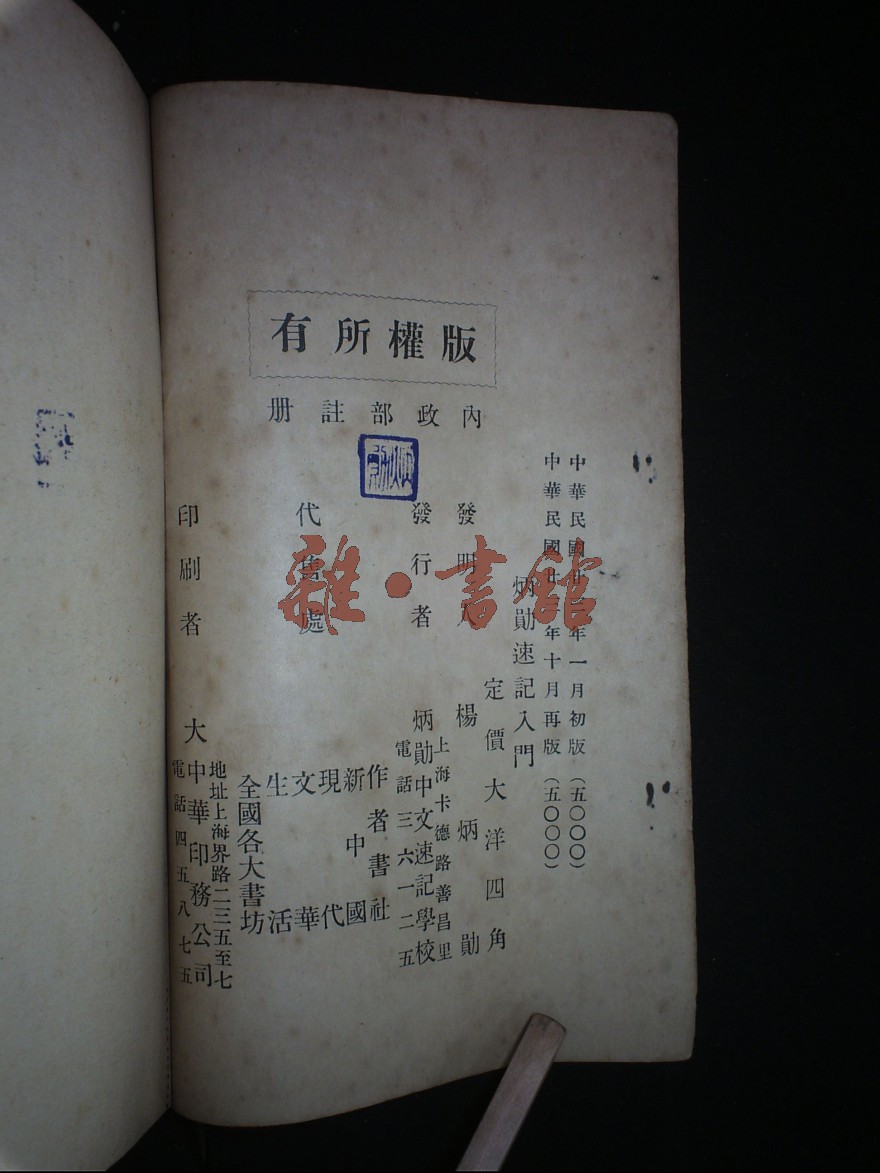 版權所有
內政部註册
中華民國廿三年一月初版(五〇〇〇)
中華民國廿三年十月再版(五〇〇〇)
炳勛速記入門
定價大洋四角
發明人 楊炳勛
發行者 炳勛中文速記學校
上海卡德路善昌里
電話三六一二五
代售處
作者書社
新中國
現代
文華
生活
全國各大書坊
印刷者 大中華印務公司
地址上海界路二三五至七
電話四五八七五
雜·書館